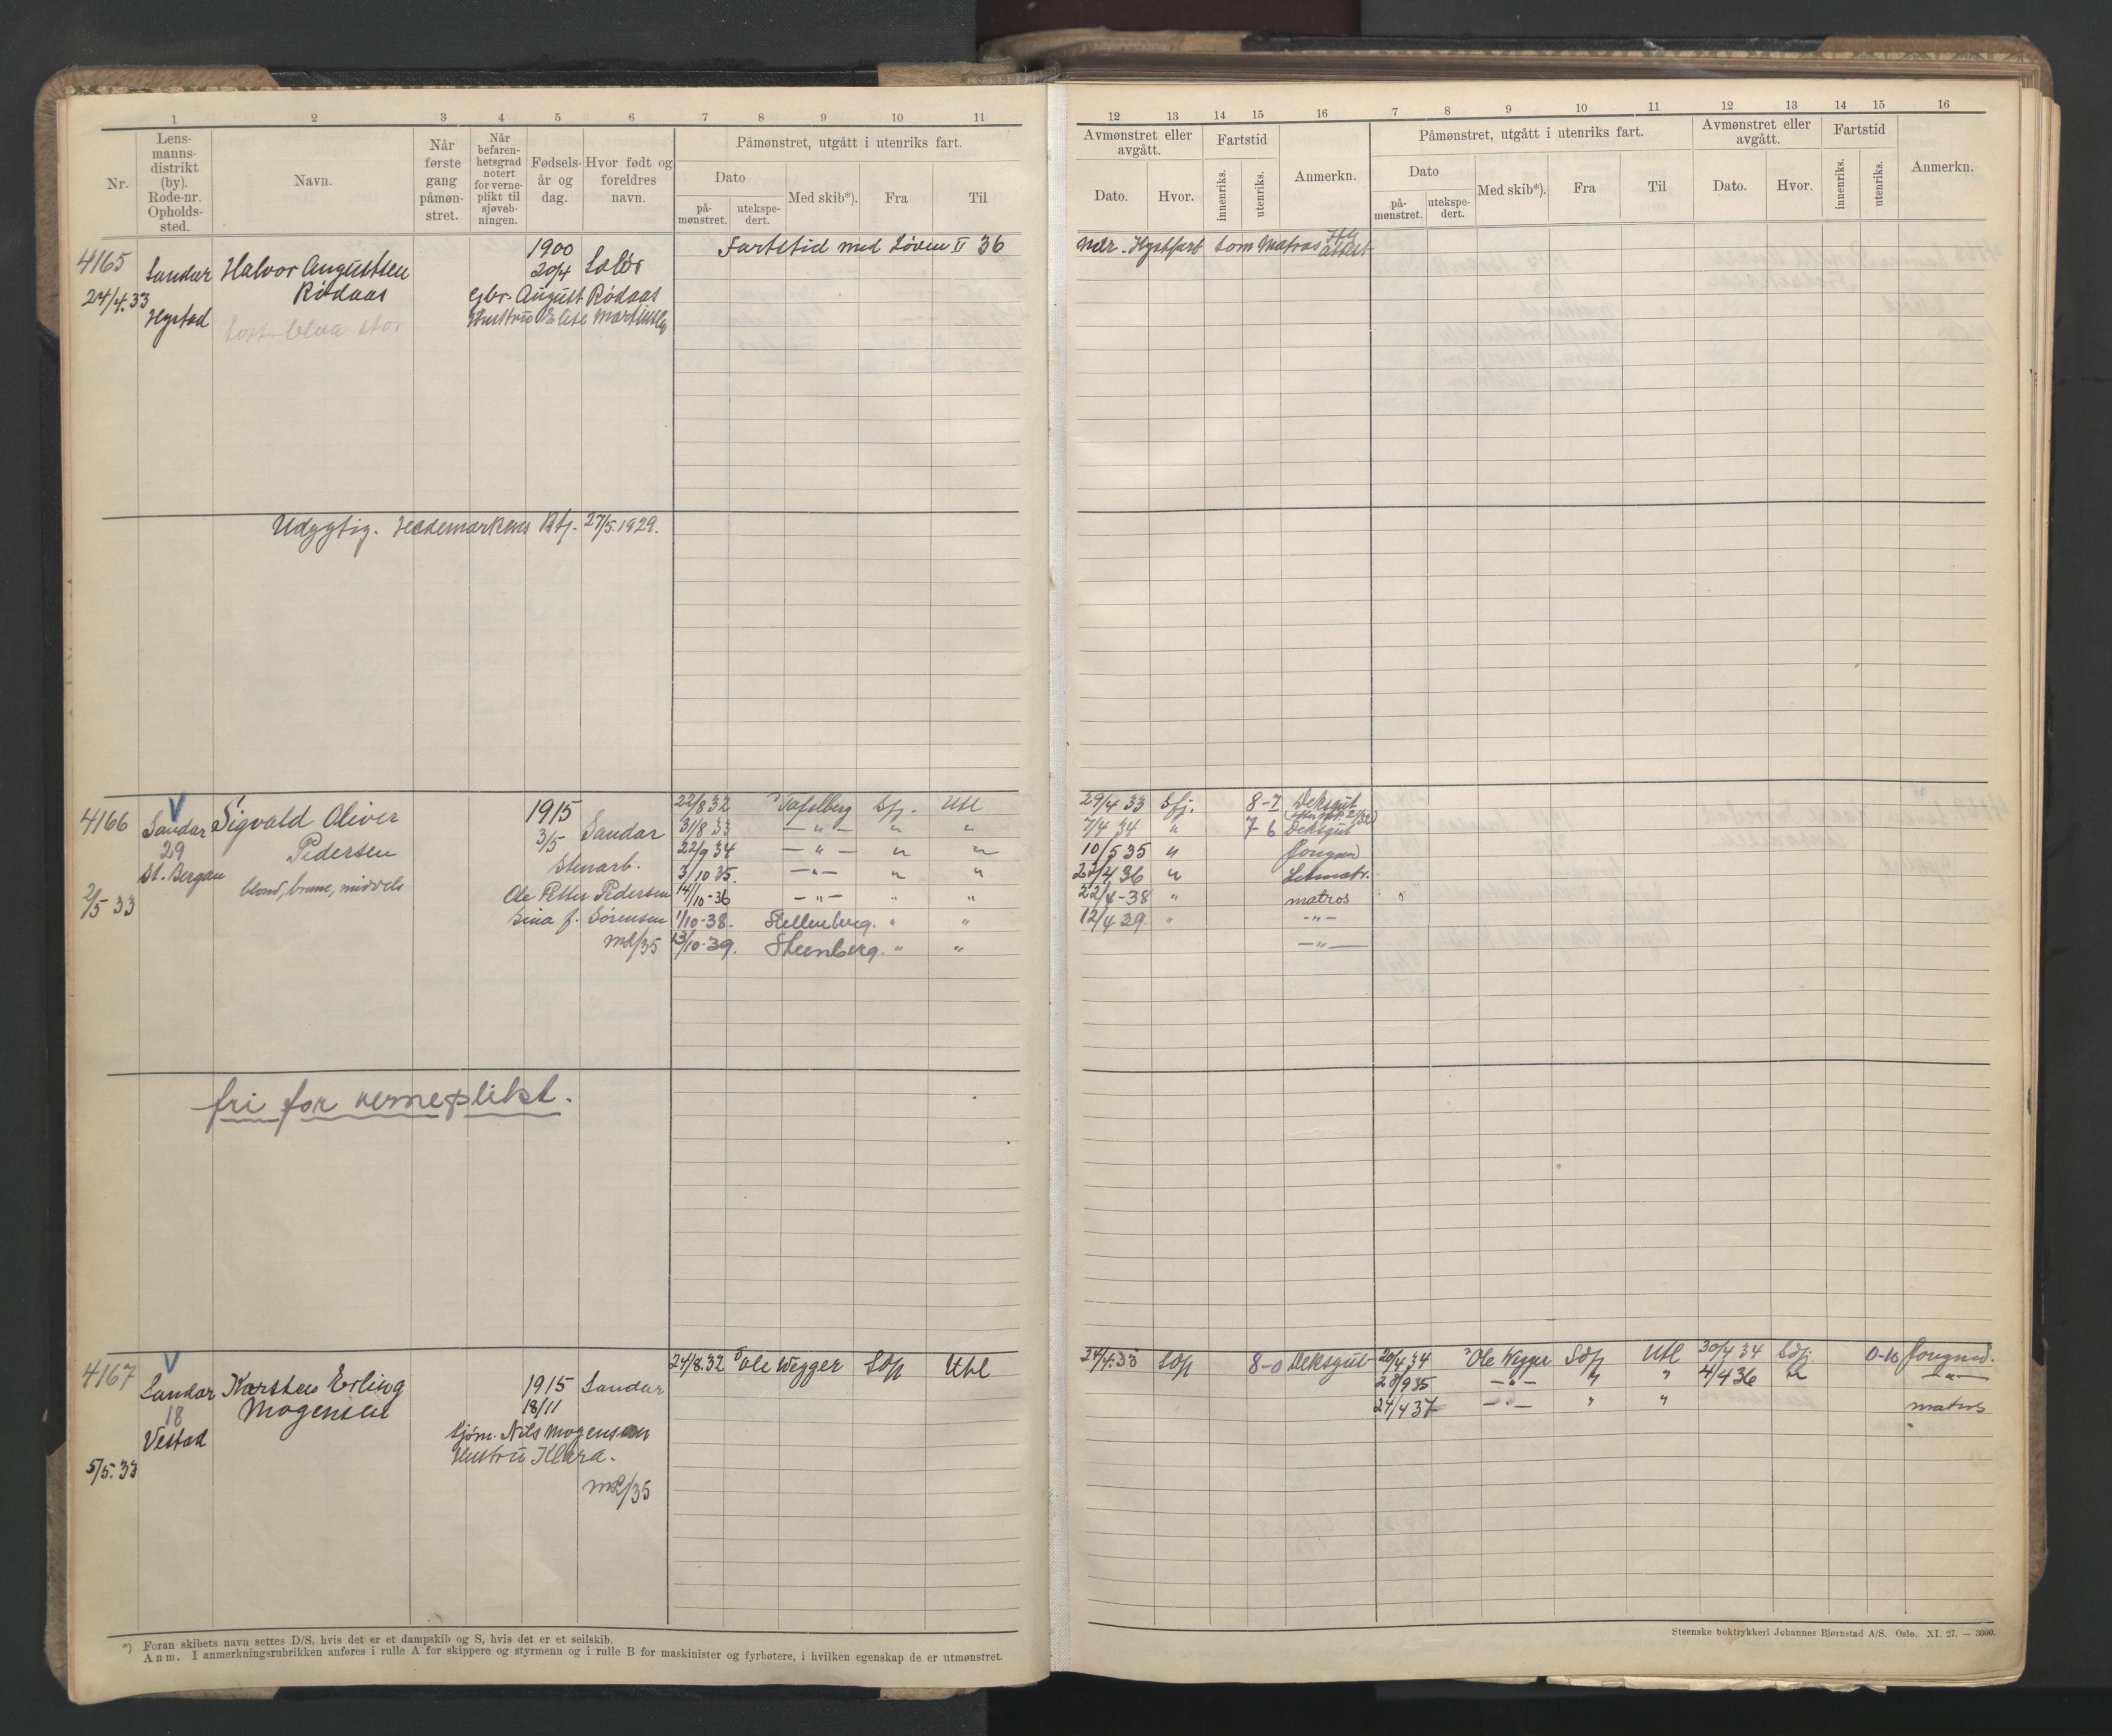 1 2 3 4 5 6 7 8 9 10 11
Nr.
Lens-
manns-
distrikt
(by).
Rode-nr.
Opholds-
sted.
Navn.
Når
første
gang
påmøn-
stret.
Når
befaren-
hetsgrad
notert
for verne-
plikt til
sjøveb-
ningen.
Fødsels-
år og
dag.
Hvor født og
foreldres
navn.
Påmønstret, utgått i utenriks fart.
Dato
på-
mønstret.
utekspe-
dert.
Med skib*).
Fra
Til
12 13 14 15 16 7 8 9 10 11 12 13 14 15 16
Avmønstret eller
avgått.
Dato.
Hvor.
Fartstid
innenriks.
utenriks.
Anmerkn.
Påmønstret, utgått i utenriks fart.
Dato
på-
mønstret.
utekspe-
dert.
Med skib*).
Fra
Til
Avmønstret eller
avgått.
Dato.
Hvor.
Fartstid
innenriks.
utenriks.
Anmerkn.
4165
24/4.33
Sandar
Hystad
Halvor Augustsen
Rødaas
1900
20/4 Solør
Gbr. August Rødaas
Hustru Elise
Fartstid med Løven II 36
mdr. Kystfart som Matros
attest
Udygtig. Hedemarkens Btj. 27/5.1929.
4166
2/5 33
V
Sandar
29
St. Bergan
Sigvald Oliver
Pedersen
blond, brune, middels
1915
3/5 Sandar
Stenarb.
Ole Petter Pedersen
Sina f. Sørensen
m2/35
22/8 32 Tafelberg Sfj. Utl 29/4 33 Sfj. 8-7 Deksgut
31/8 33 — " — " " 7/4 34 " 7-6 Deksgut
22/9 34 — " — " " 10/5 35 " Jungmd
3/10 35. — " — " " 23/4 36 " Letmatr.
14/10-36 — " — " " 22/4-38 " matros
1/10-38. Stellenberg. " " 12/4 39. " — " —
13/10-39. Steenberg. " " — " —
fri for verneplikt.
4167
5/5.33
V
Sandar
18
Vestad
Karsten Erling
Mogensen
1915 Sandar
18/11
Sjøm. Nils Mogensen
Hustru Klara.
m2/35
24/8.32 Ole Wegger Sdfj Utl 24/4.33 Sdfj 8-0 Deksgut
20/4 34 Ole Wegger Sdfj Utl 30/4 34 Sdfj. 0-10 Jungmd.
28/9 35 — " — " " 4/4 36 " — " —
24/4 37 — " — " " matros
*) Foran skibets navn settes D/S, hvis det er et dampskib og S, hvis det er et seilskib.
Anm. I anmerkningsrubrikken anføres i rulle A for skippere og styrmenn og i rulle B for maskinister og fyrbøtere, i hvilken egenskap de er utmønstret.
Steenske boktrykkeri Johannes Bjørnstad A/S. Oslo. XI. 27. — 3000.